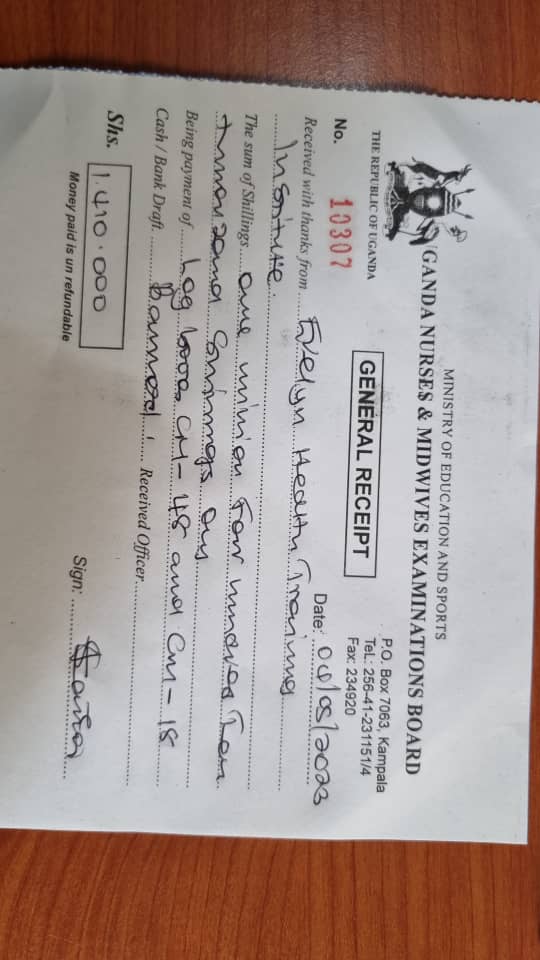 MINISTRY OF EDUCATION AND SPORTS
UGANDA NURSES & MIDWIVES EXAMINATIONS BOARD
THE REPUBLIC OF UGANDA
P.O. Box 7063, Kampala
Tel.: 256-41-231151/4
Fax: 234920
GENERAL RECEIPT
No. 10307
Date: 04/05/2023
Received with thanks from Evelyn Health Training
Institute.
The sum of Shillings one million Four hundred Ten
thousand Shillings only
Being payment of Log books CM-48 and CM-18
Cash / Bank Draft Banked. Received Officer
Shs. 1.410.000
Sign:
Money paid is un refundable